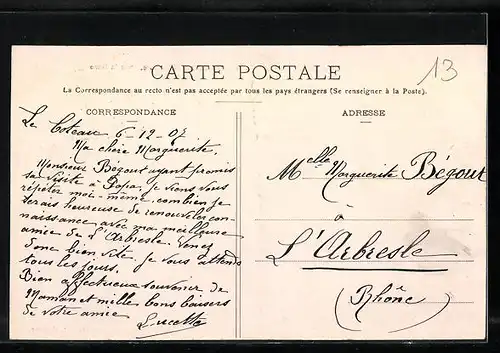 13
CARTE POSTALE
La Correspondance au recto n'est pas acceptée par tous les pays étrangers (Se renseigner à la Poste).
CORRESPONDANCE
Le Coteau 6-12-07
Ma chère Marguerite,
Monsieur Bégout ayant promis
sa visite à Papa, je viens vous
répéter moi-même combien je
serais heureuse de renouveler con-
naissance avec ma meilleure
amie de l'Arbresle. Venez
donc bien vite. Je vous attends
tous les jours.
Bien affectueux souvenir de
Maman et mille bons baisers
de votre amie
Lucette
ADRESSE
Melle Marguerite Bégout
à
L'Arbresle
(Rhône)